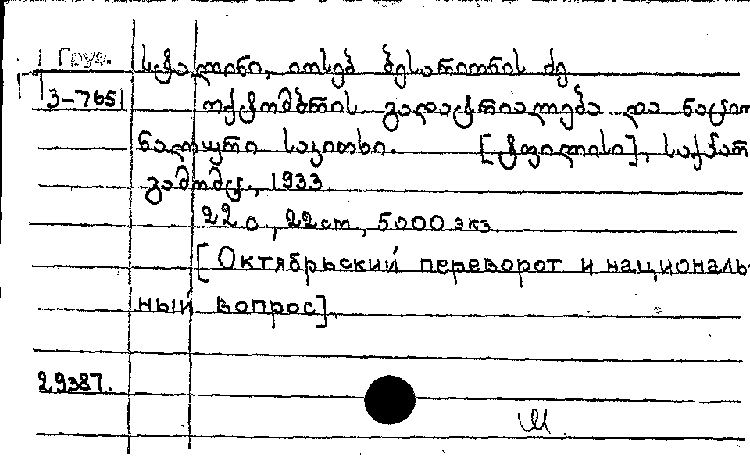 Груз.
3-7651
სტალინი, იოსებ ბესარიონის ძე
ოქტომბრის გადატრიალება და ნაციო
ნალური საკითხი. [ტფილისი], საქპარ
გამომც., 1933.
22 с, 22 см, 5000 экз.
[Октябрьский переворот и националь-
ный вопрос].
29387.
Ш